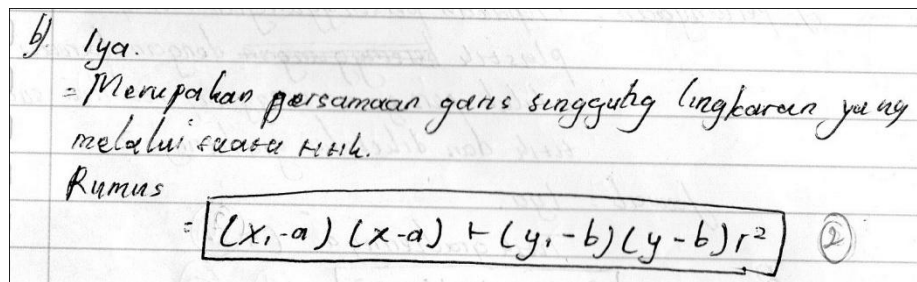 b) Iya.
= Merupakan persamaan garis singgung lingkaran yang
melalui suatu titik.
Rumus
= (x₁-a) (x-a) + (y₁-b) (y-b) r² ②